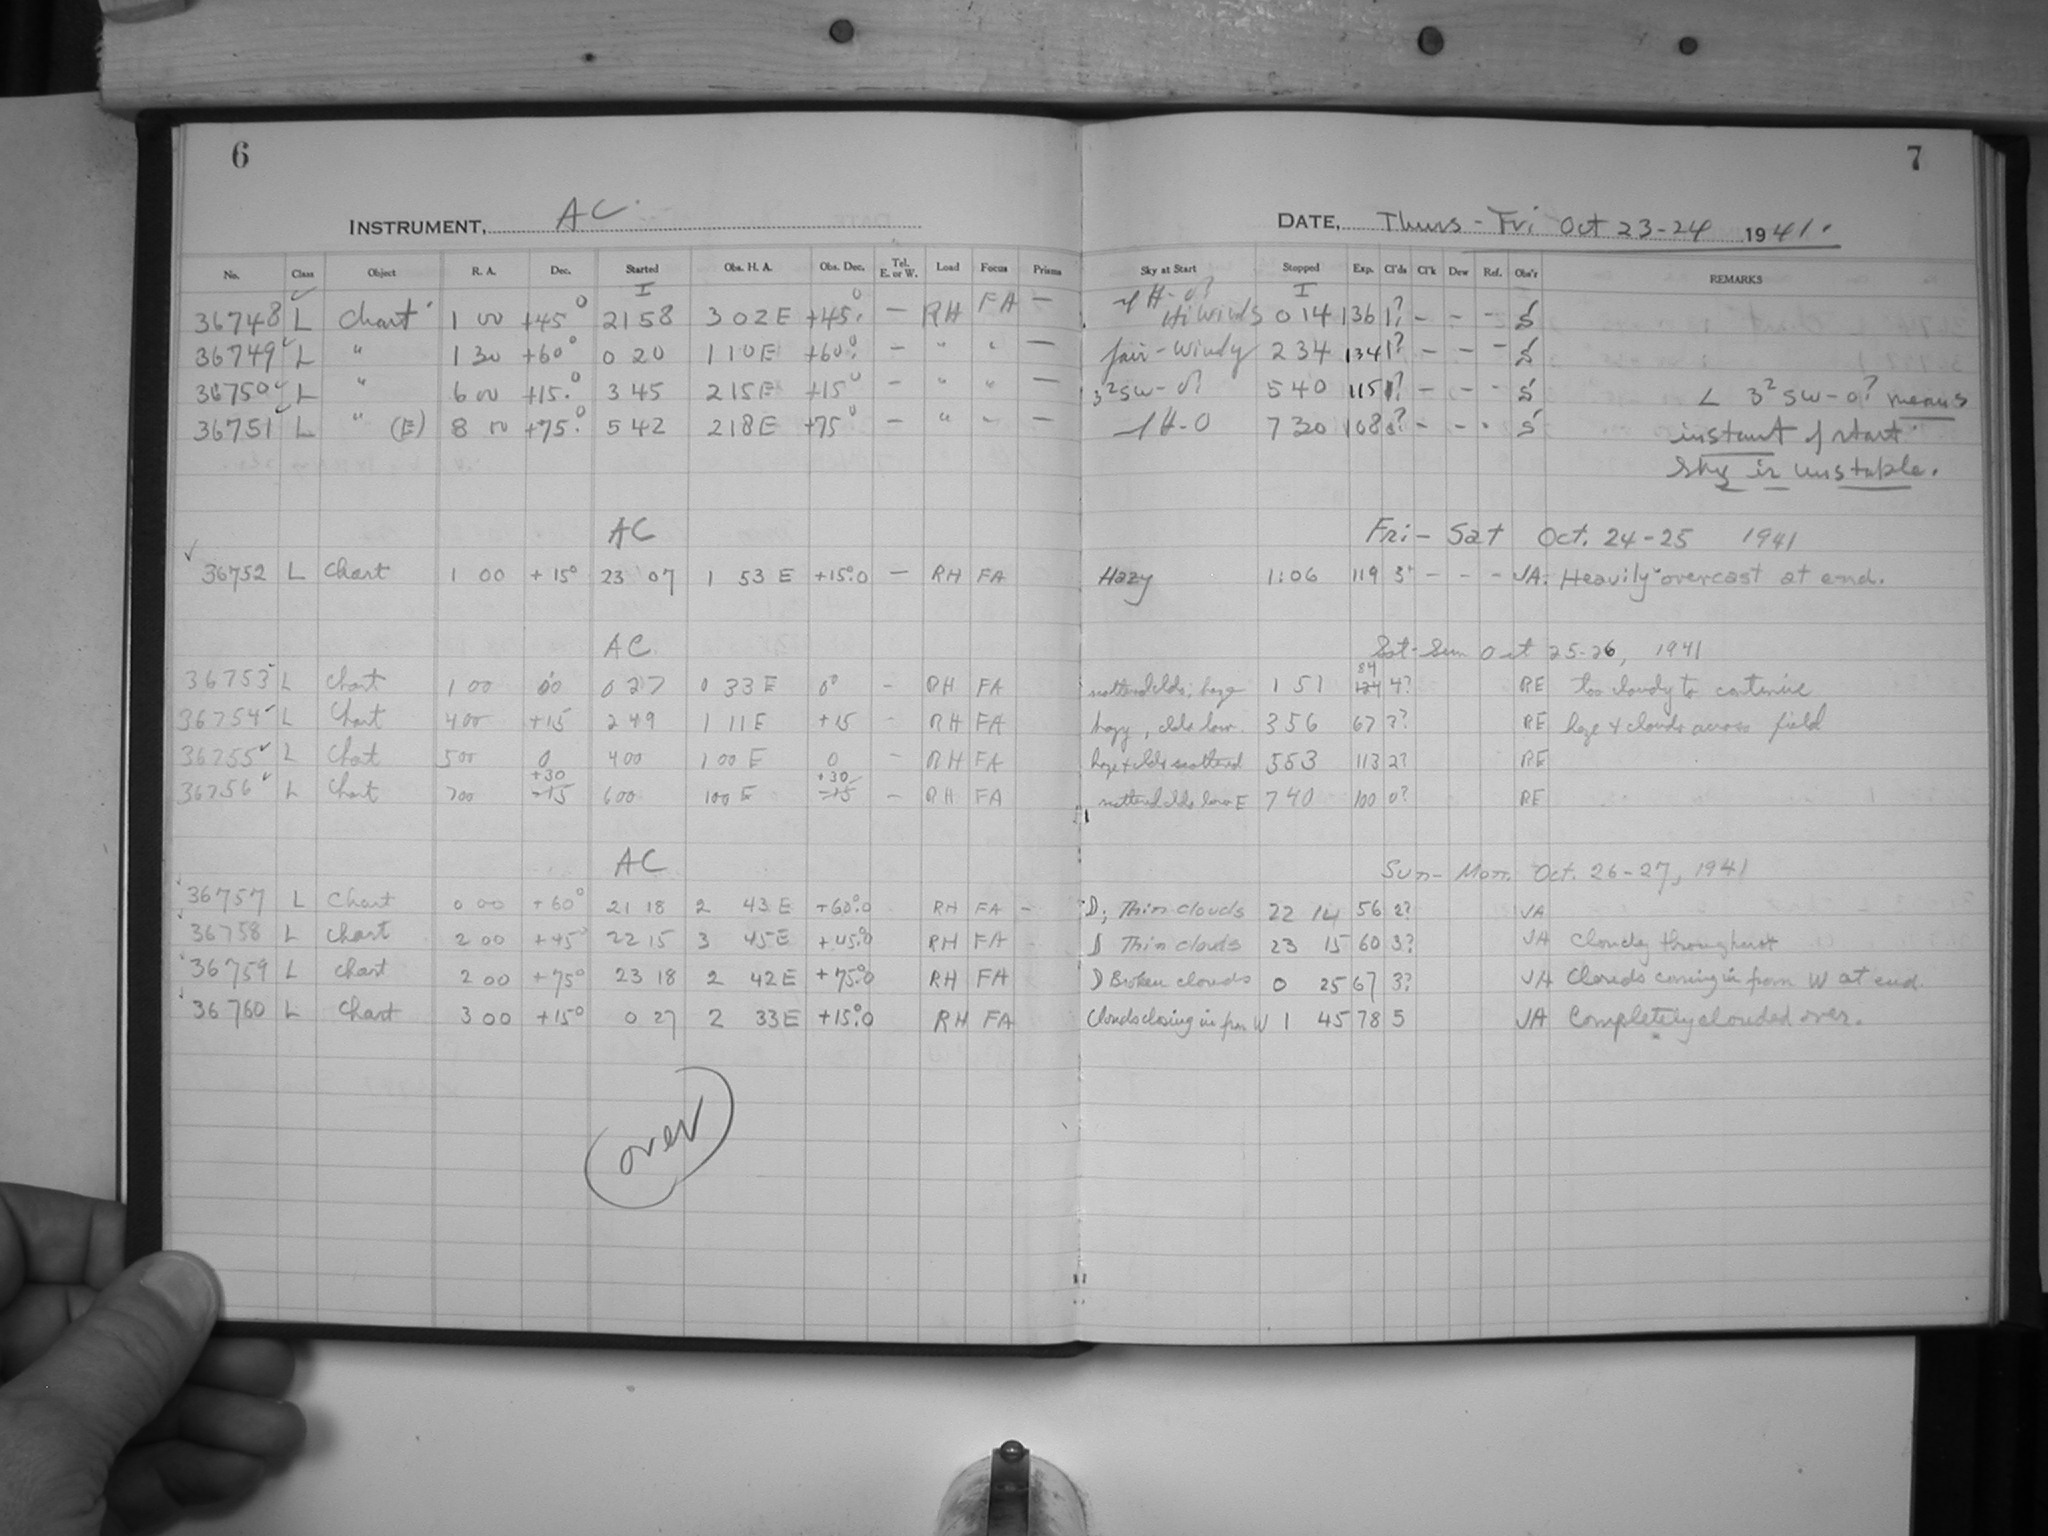 6
7
INSTRUMENT, AC.
DATE, Thurs - Fri Oct 23-24 1941.
No. Class Object R. A. Dec. Started Obs. H. A. Obs. Dec. Tel. E. or W. Load Focus Prisms Sky at Start Stopped Exp. Cl'ds Cl'k Dew Ref. Obs'r REMARKS
I I
36748 L Chart 1 00 +45° 21 58 3 02 E +45° — RH FA — H-0? Hi Winds 0 14 136 1? - - - S
36749 L " 1 30 +60° 0 20 1 10 E +60° — " " — fair - Windy 2 34 134 1? — — - S
36750 L " 6 00 +15° 3 45 2 15 E +15° — " " — 3² SW - 0? 5 40 115 1? - - - S L 3² SW - 0? means
36751 L " (E) 8 00 +75° 5 42 2 18 E +75° — " " — H-0 7 30 108 ? - - - S instant of start
sky is unstable.
AC Fri - Sat Oct. 24-25 1941
36752 L Chart 1 00 +15° 23 07 1 53 E +15°.0 — RH FA Hazy 1:06 119 3 - - - JA. Heavily overcast at end.
AC Sat - Sun Oct 25-26, 1941
36753 L Chart 1 00 00 0 27 0 33 E 0° - RH FA scattered clds; haze 1 51 84 4? RE too cloudy to continue
36754 L Chart 4 00 +15 2 49 1 11 E +15 - RH FA hazy, clds low. 3 56 67 ?? RE haze & clouds across field
36755 L Chart 5 00 0 4 00 1 00 E 0 - RH FA haze & clds scattered 5 53 113 2? RE
36756 L Chart 7 00 +30 -15 6 00 1 00 E +30 -15 - RH FA scattered clds low E 7 40 100 0? RE
AC Sun - Mon. Oct. 26-27, 1941
36757 L Chart 0 00 +60° 21 18 2 43 E +60°.0 RH FA - D; Thin clouds 22 14 56 2? JA
36758 L Chart 2 00 +45° 22 15 3 45 E +45°.0 RH FA D Thin clouds 23 15 60 3? JA Cloudy throughout
36759 L Chart 2 00 +75° 23 18 2 42 E +75°.0 RH FA D Broken clouds 0 25 67 3? JA Clouds coming in from W at end.
36760 L Chart 3 00 +15° 0 27 2 33 E +15°.0 RH FA Clouds closing in from W 1 45 78 5 JA Completely clouded over.
over